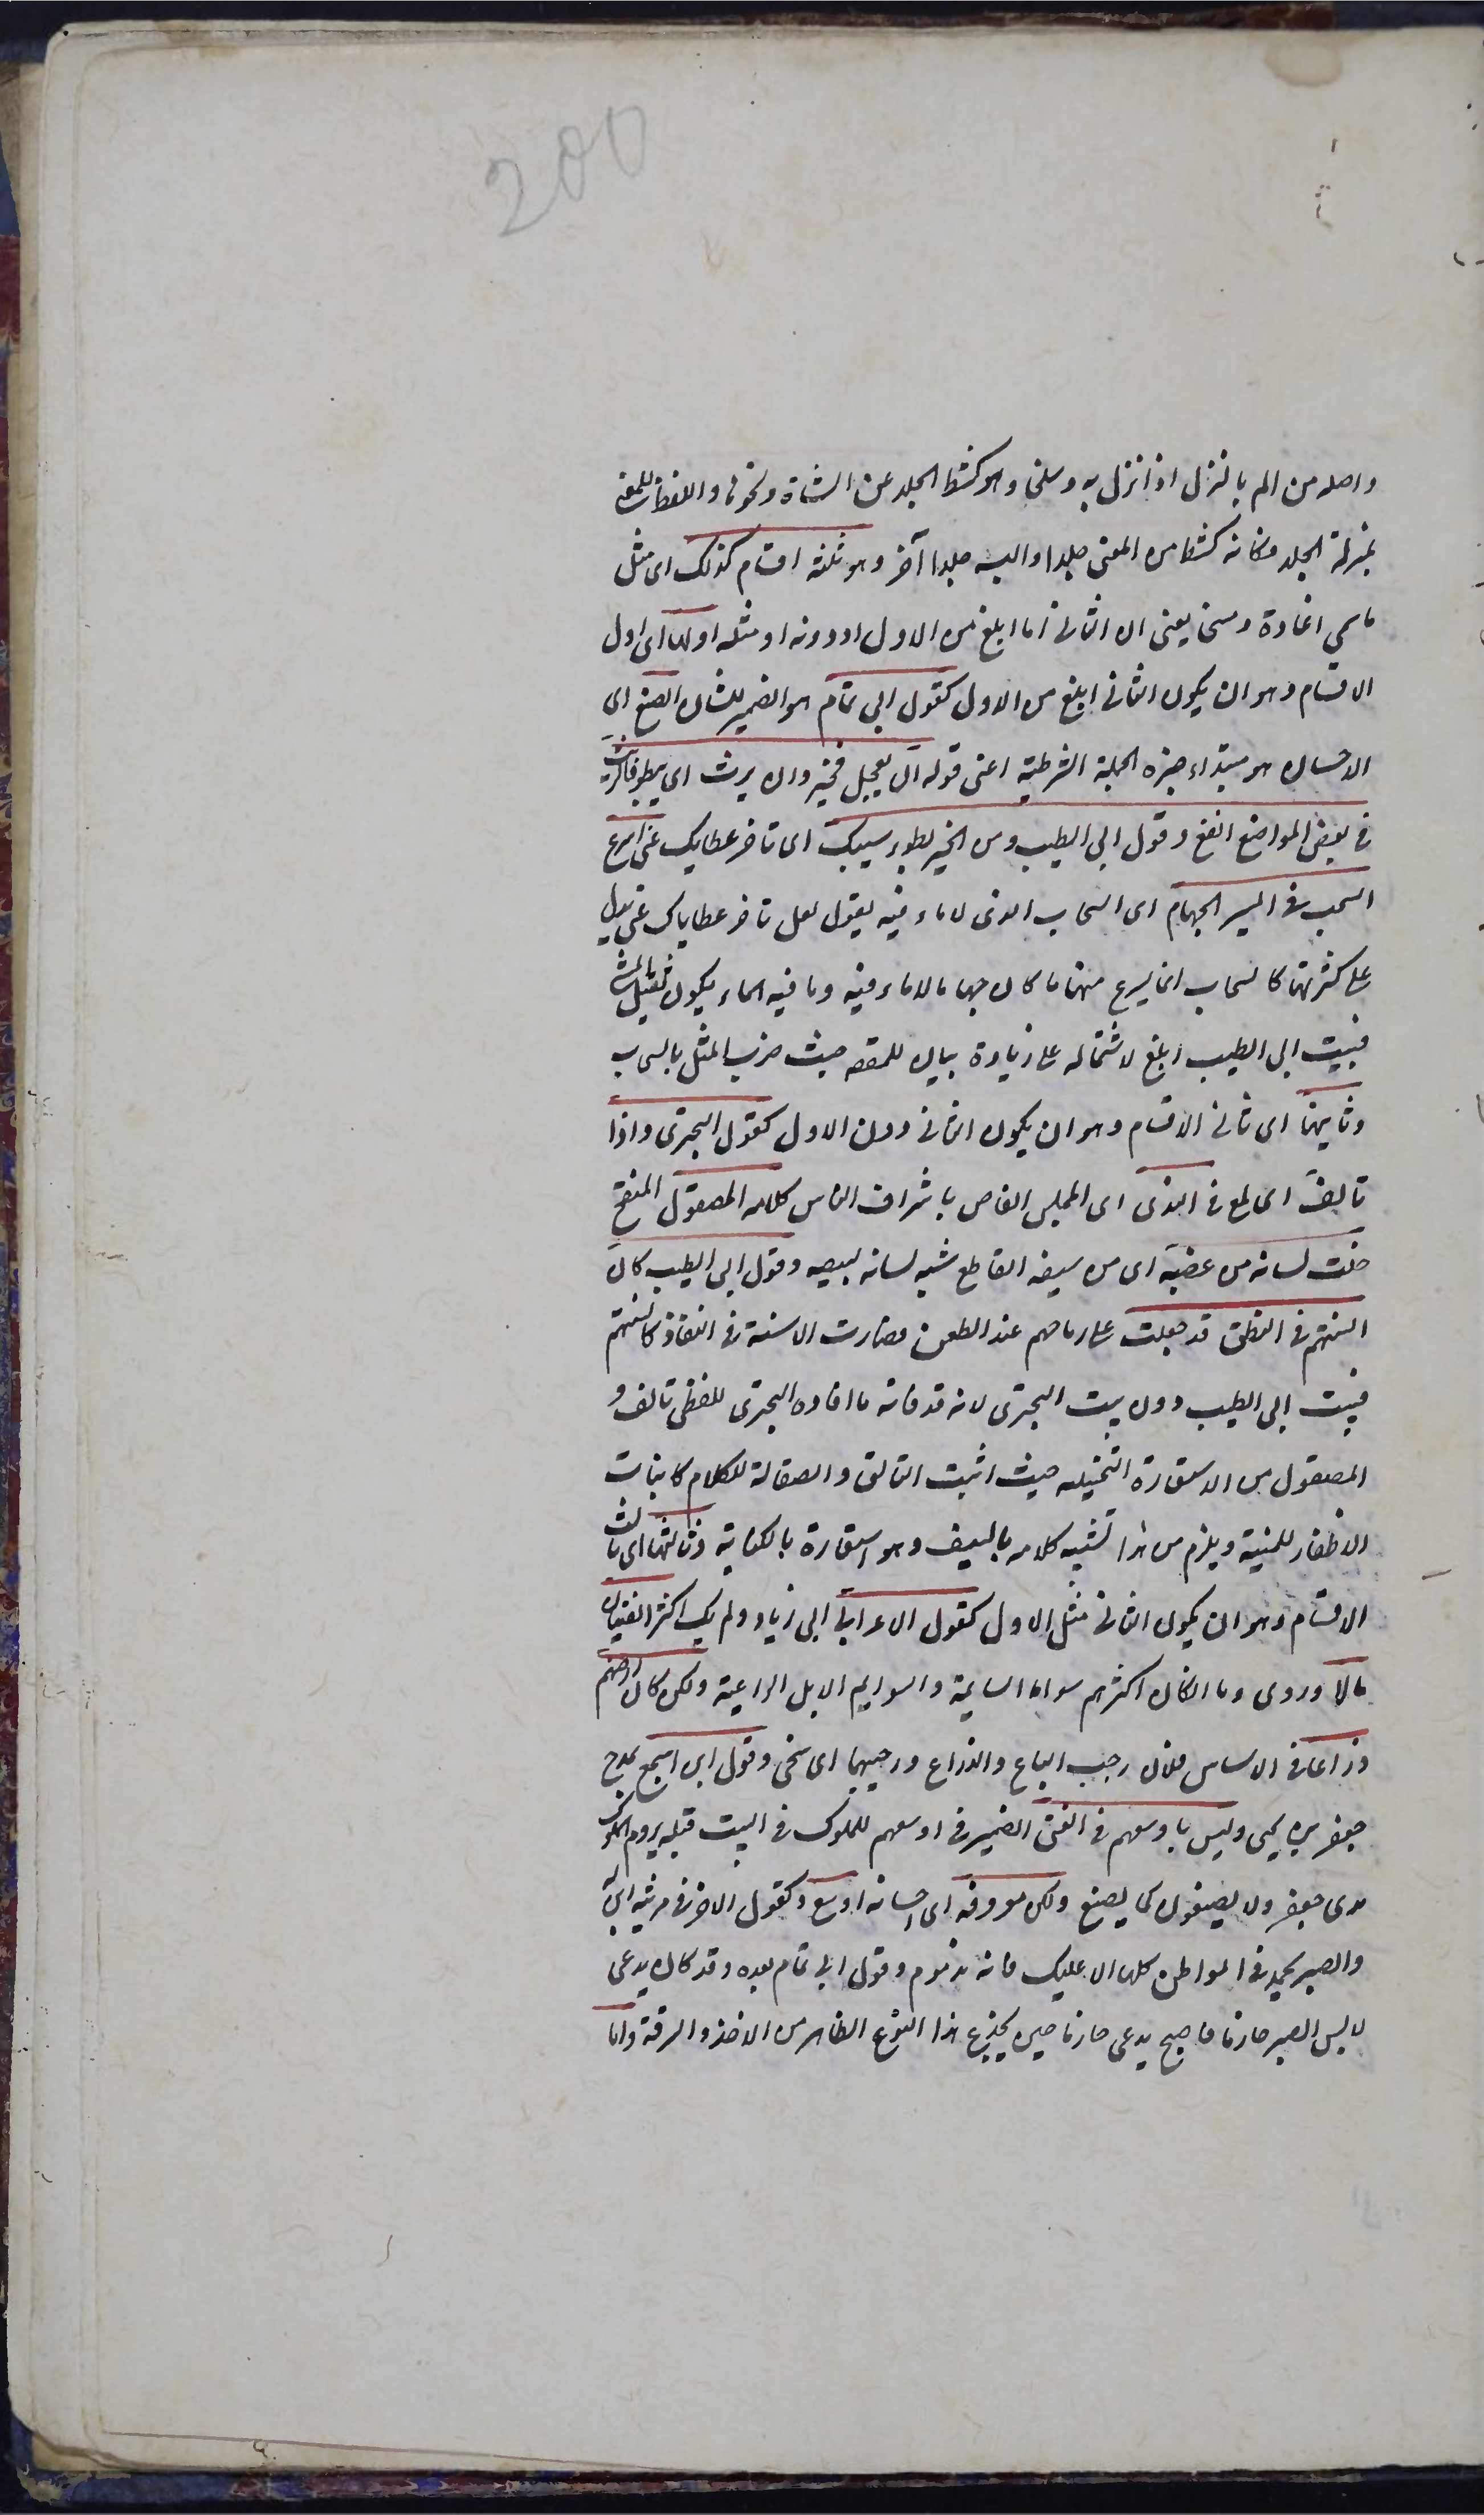 200
واصله من الم بالمنزل اذا نزل به وسلخا وهو كشط الجلد عن الشاة ونحوها واللفظ للمعنى
بمنزلة الجلد فكانه كشط من المعنى جلدا والبسه جلدا آخر وهو ثلثة اقسام كذلك اى مثل
ما سمي اغارة ومسخا يعنى ان الثانى اما ابلغ من الاول او دونه او مثله اولها اى اول
الاقسام وهو ان يكون الثانى ابلغ من الاول كقول ابى تمام هو الضمير للشان الصنع اى
الاحسان هو مبتداء خبره الجملة الشرطية اعنى قوله ان يعجل فخير وان يرث اى يبطؤ فالريث
فى بعض المواضع انفع وقول ابى الطيب ومن الخير بطوء سيبك اى تاخر عطايك عنى اسرع
السحب فى المسير الجهام اى السحاب الذى لا ماء فيه يقول لعل تاخر عطاياك عنى يدل
على كثرتها كالسحاب انما يسرع منها ما كان جهاما لا ماء فيه وما فيه الماء يكون ثقيل المشى
فبيت ابى الطيب ابلغ لاشتماله على زيادة بيان للمقصد حيث ضرب المثل بالسحاب
وثانيها اى ثانى الاقسام وهو ان يكون الثانى دون الاول كقول البحترى واذا
تالق اى لمع فى الندى اى المجلس الغاص باشراف الناس كلامه المصقول المنقح
خلت لسانه من عضبه اى من سيفه القاطع شبه لسانه بسيفه وقول ابى الطيب كان
السنهم فى النطق قد جعلت على رماحهم عند الطعن فصارت الاسنة فى النفاذ كالسنتهم
فبيت ابى الطيب دون بيت البحترى لانه قد فاته ما افاده البحترى بلفظى تالق و
المصقول من الاستعارة التخييلية حيث اثبت التالق والصقالة للكلام كاثبات
الاظفار للمنية ويلزم من هذا تشبيه كلامه بالسيف وهو استعارة بالكناية وثالثها اى ثالث
الاقسام وهو ان يكون الثانى مثل الاول كقول الاعرابى ابى زياد ولم يك اكثر الفتيان
مالا وروى وما ان كان اكثرهم سواما السايمة والسوايم الابل الراعية ولكن كان ارحبهم
ذراعا فى الاساس فلان رحب الباع والذراع ورحيبهما اى سخى وقول اشجع يمدح
جعفر بن يحيى وليس باوسعهم فى الغنى الضمير فى اوسعهم للملوك فى البيت قبله يروم الملوك
مدى جعفر ولا يصنعون كما يصنع ولكن معروفه اى احسانه اوسع وكقول الاخر فى مرثية ابن
والصبر يحمد فى المواطن كلها الا عليك فانه مذموم وقول ابى تمام بعده وقد كان يدعى
لابس الصبر حازما فاصبح يدعى حازما حين يجزع هذا النوع الظاهر من الاخذ والسرقة واما